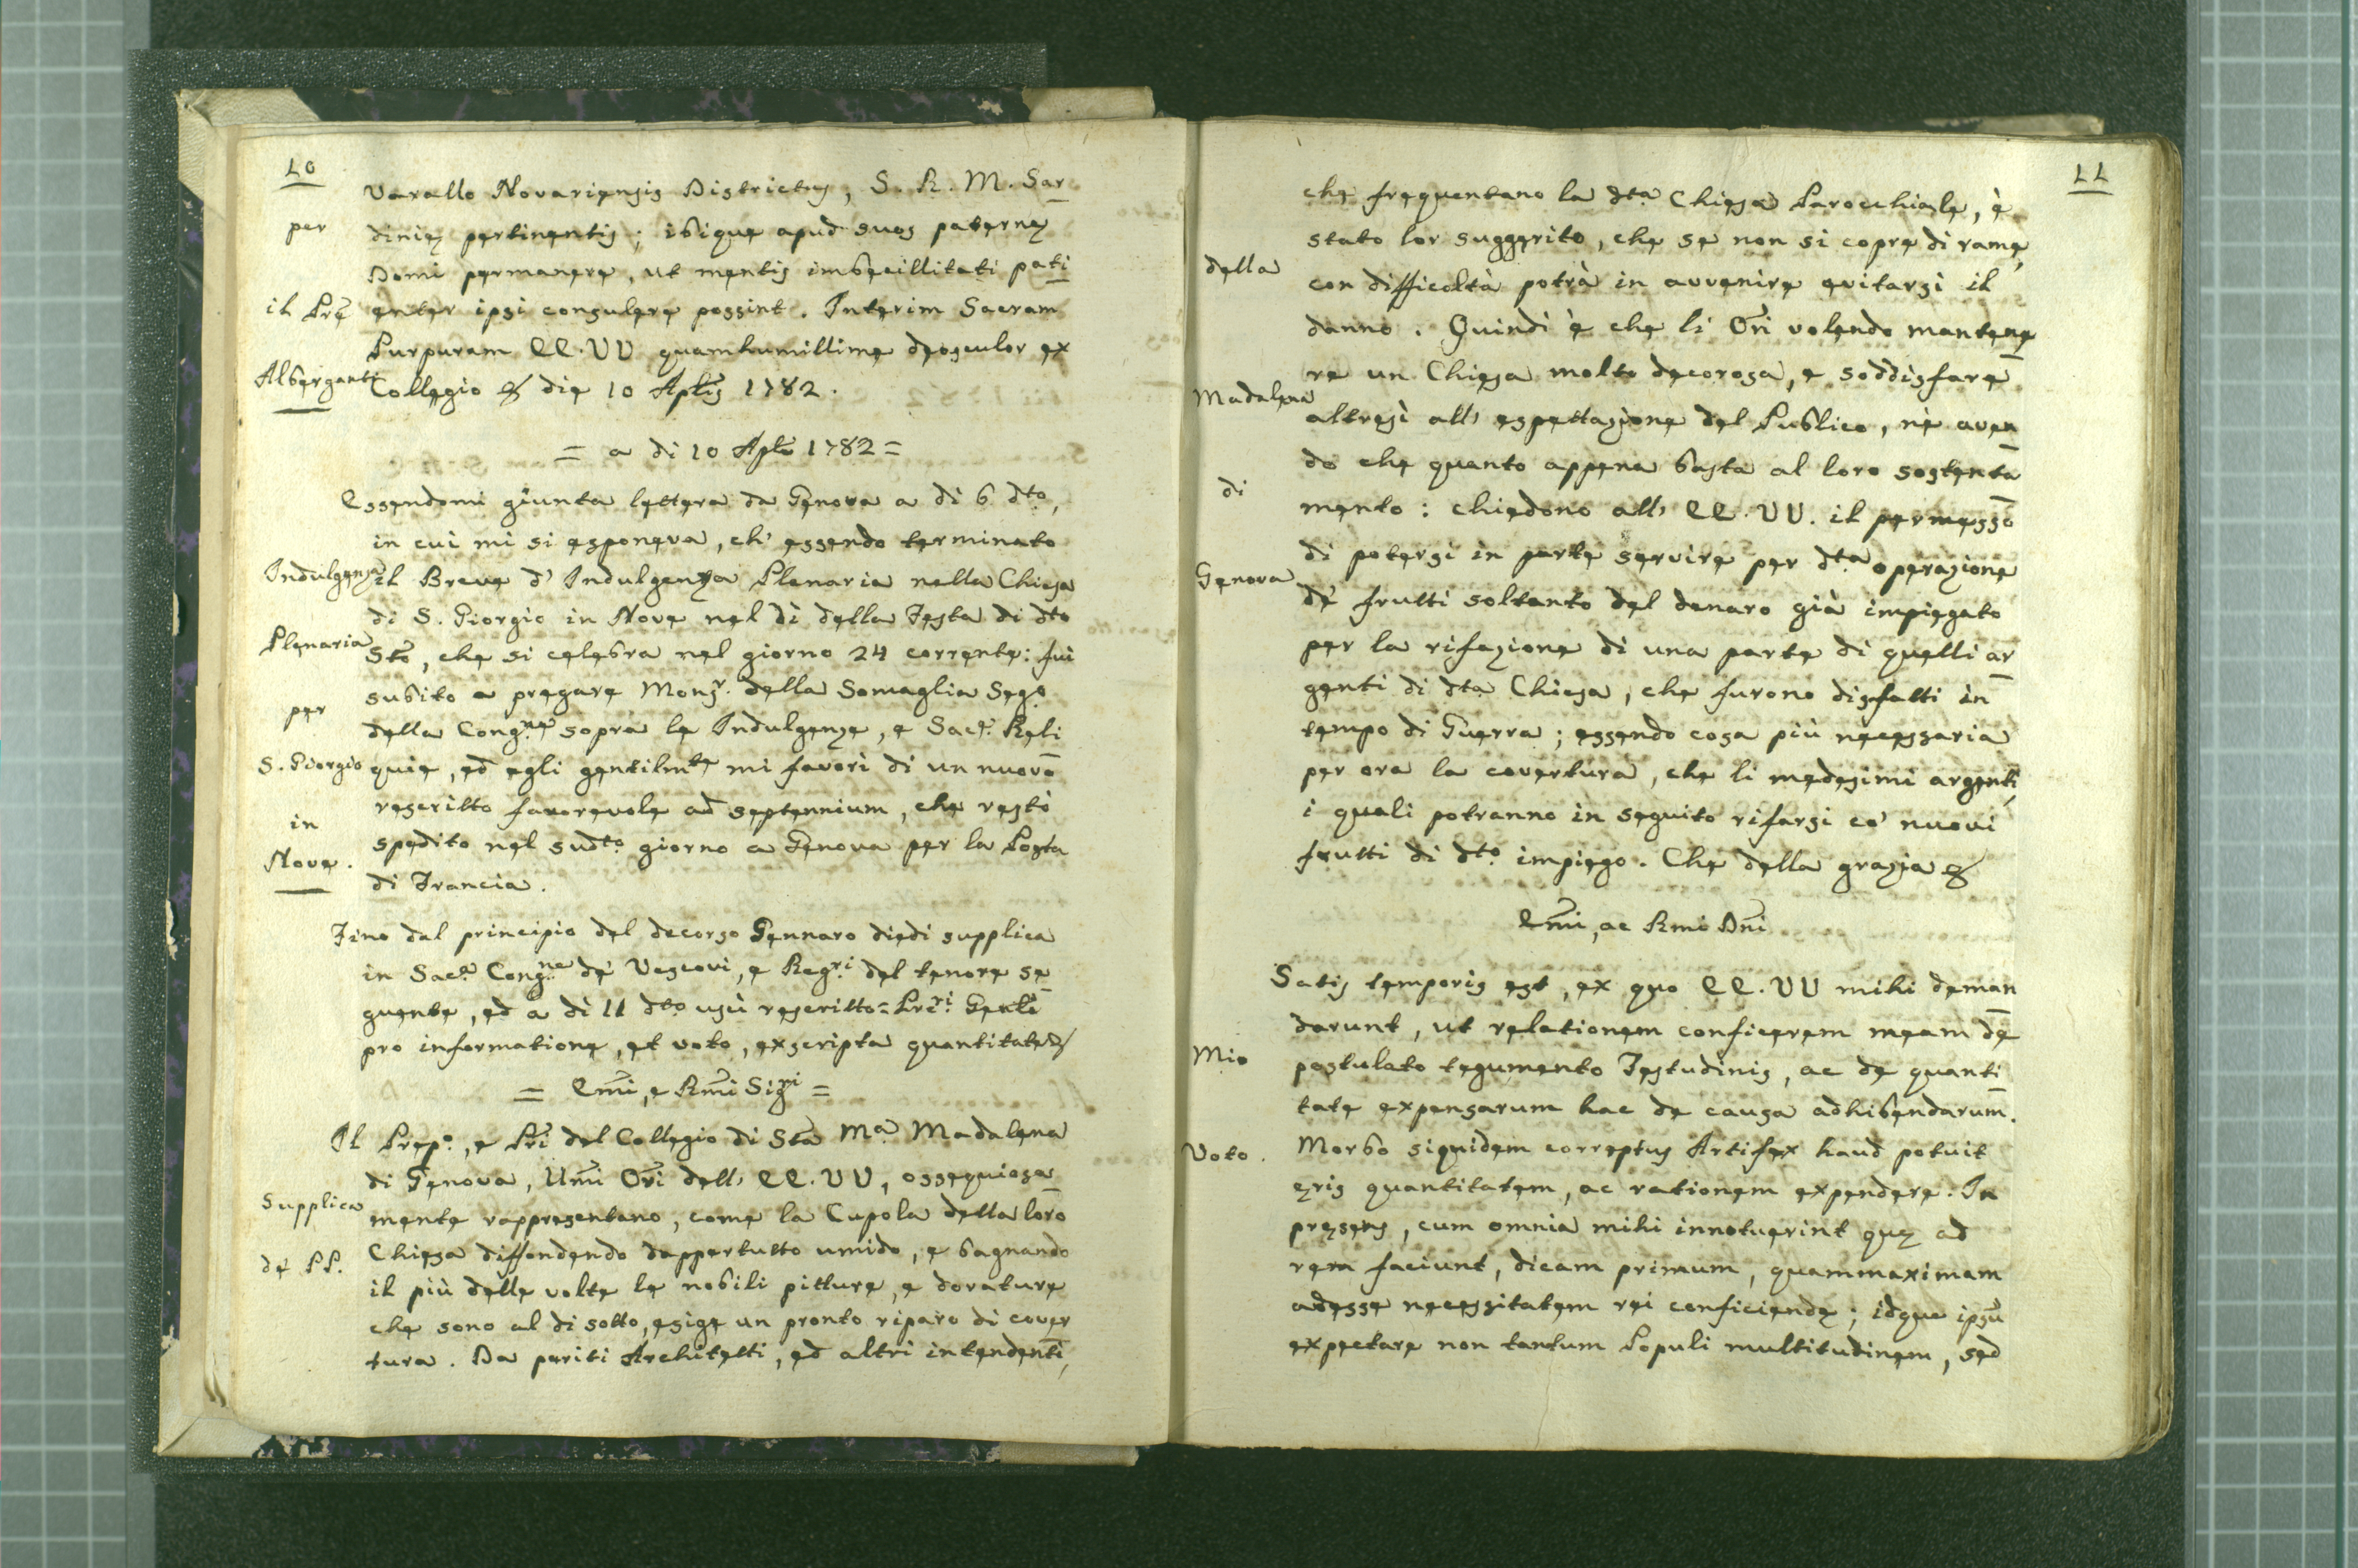 10
Varallo Novariensis Districtus, S. R. M. Sar
dinię pertinentis; ibique apud suos paternę
Domi permanere, ut mentis imbecillitati pati
enter ipsi consulere possint. Interim Sacram
Purpuram EE. VV quamhumillime deosculor ex
Collegio & die 10 Aplis 1782.
per
il Pre
Alberganti
= a di 10 Aple 1782 =
Essendomi giunta lettera da Genova a di 6 dto,
in cui mi si esponeva, ch' essendo terminato
il Breve d' Indulgenza Plenaria nella Chiesa
di S. Giorgio in Nove nel dì della Festa di dto
Sto, che si celebra nel giorno 24 corrente: fui
subito a pregare Monsr. della Somaglia Sego
della Congne sopra le Indulgenze, e Sace. Reli
quie, ed egli gentilmte mi favorì di un nuovo
rescritto favorevole ad septennium, che restò
spedito nel sudto giorno a Genova per la Posta
di Francia.
Indulgenza
Plenaria
per
S. Giorgio
in
Nove.
Fino dal principio del decorso Gennaro diedi supplica
in Saca Congne dè Vescovi, e Regri del tenore se
guente, ed a dì 11 dto usì rescritto = Prri Genli
pro informatione, et voto, exscripta quantitate &
= Emi, e Rmi Sigri =
Il Prepo, e Pri del Collegio di Sta Ma Madalena
di Genova, Umi Ori dell' EE. VV, ossequiosa
mente rappresentano, come la Cupola della loro
Chiesa diffondendo dappertutto umido, e bagnando
il più delle volte le nobili pitture, e dorature
che sono al di sotto, esige un pronto riparo di cover
tura. Da periti Architetti, ed altri intendenti,
Supplica
dè PP.
11
che frequentano la dta Chiesa Parocchiale, è
stato lor suggerito, che se non si copre di rame,
con difficoltà potrà in avvenire evitarsi il
danno. Quindi è che li Ori volendo mantene
re un Chiesa molto decorosa, e soddisfare
altresì all' espettazione del Publico, nè aven
do che quanto appena basta al loro sostenta
mento: chiedono all' EE. VV. il permesso
di potersi in parte servire per dta operazione
dè frutti soltanto del denaro già impiegato
per la rifazione di una parte di quelli ar
genti di dta Chiesa, che furono disfatti in
tempo di Guerra; essendo cosa più necessaria
per ora la covertura, che li medesimi argenti,
i quali potranno in seguito rifarsi co' nuovi
frutti di dto impiego. Che della grazia &
della
Madalena
di
Genova
Emi, ac Rmi Dni
Satis temporis est, ex quo EE. VV mihi deman
darunt, ut relationem conficerem meam de
postulato tegumento Testudinis, ac de quanti
tate expensarum hac de causa adhibendarum.
Morbo siquidem correptus Artifex haud potuit
ęris quantitatem, ac rationem expendere. In
pręsens, cum omnia mihi innotuerint quę ad
rem faciunt, dicam primum, quammaximam
adesse necessitatem rei conficiendę; idque ipsu
expectare non tantum Populi multitudinem, sed
Mio
Voto.